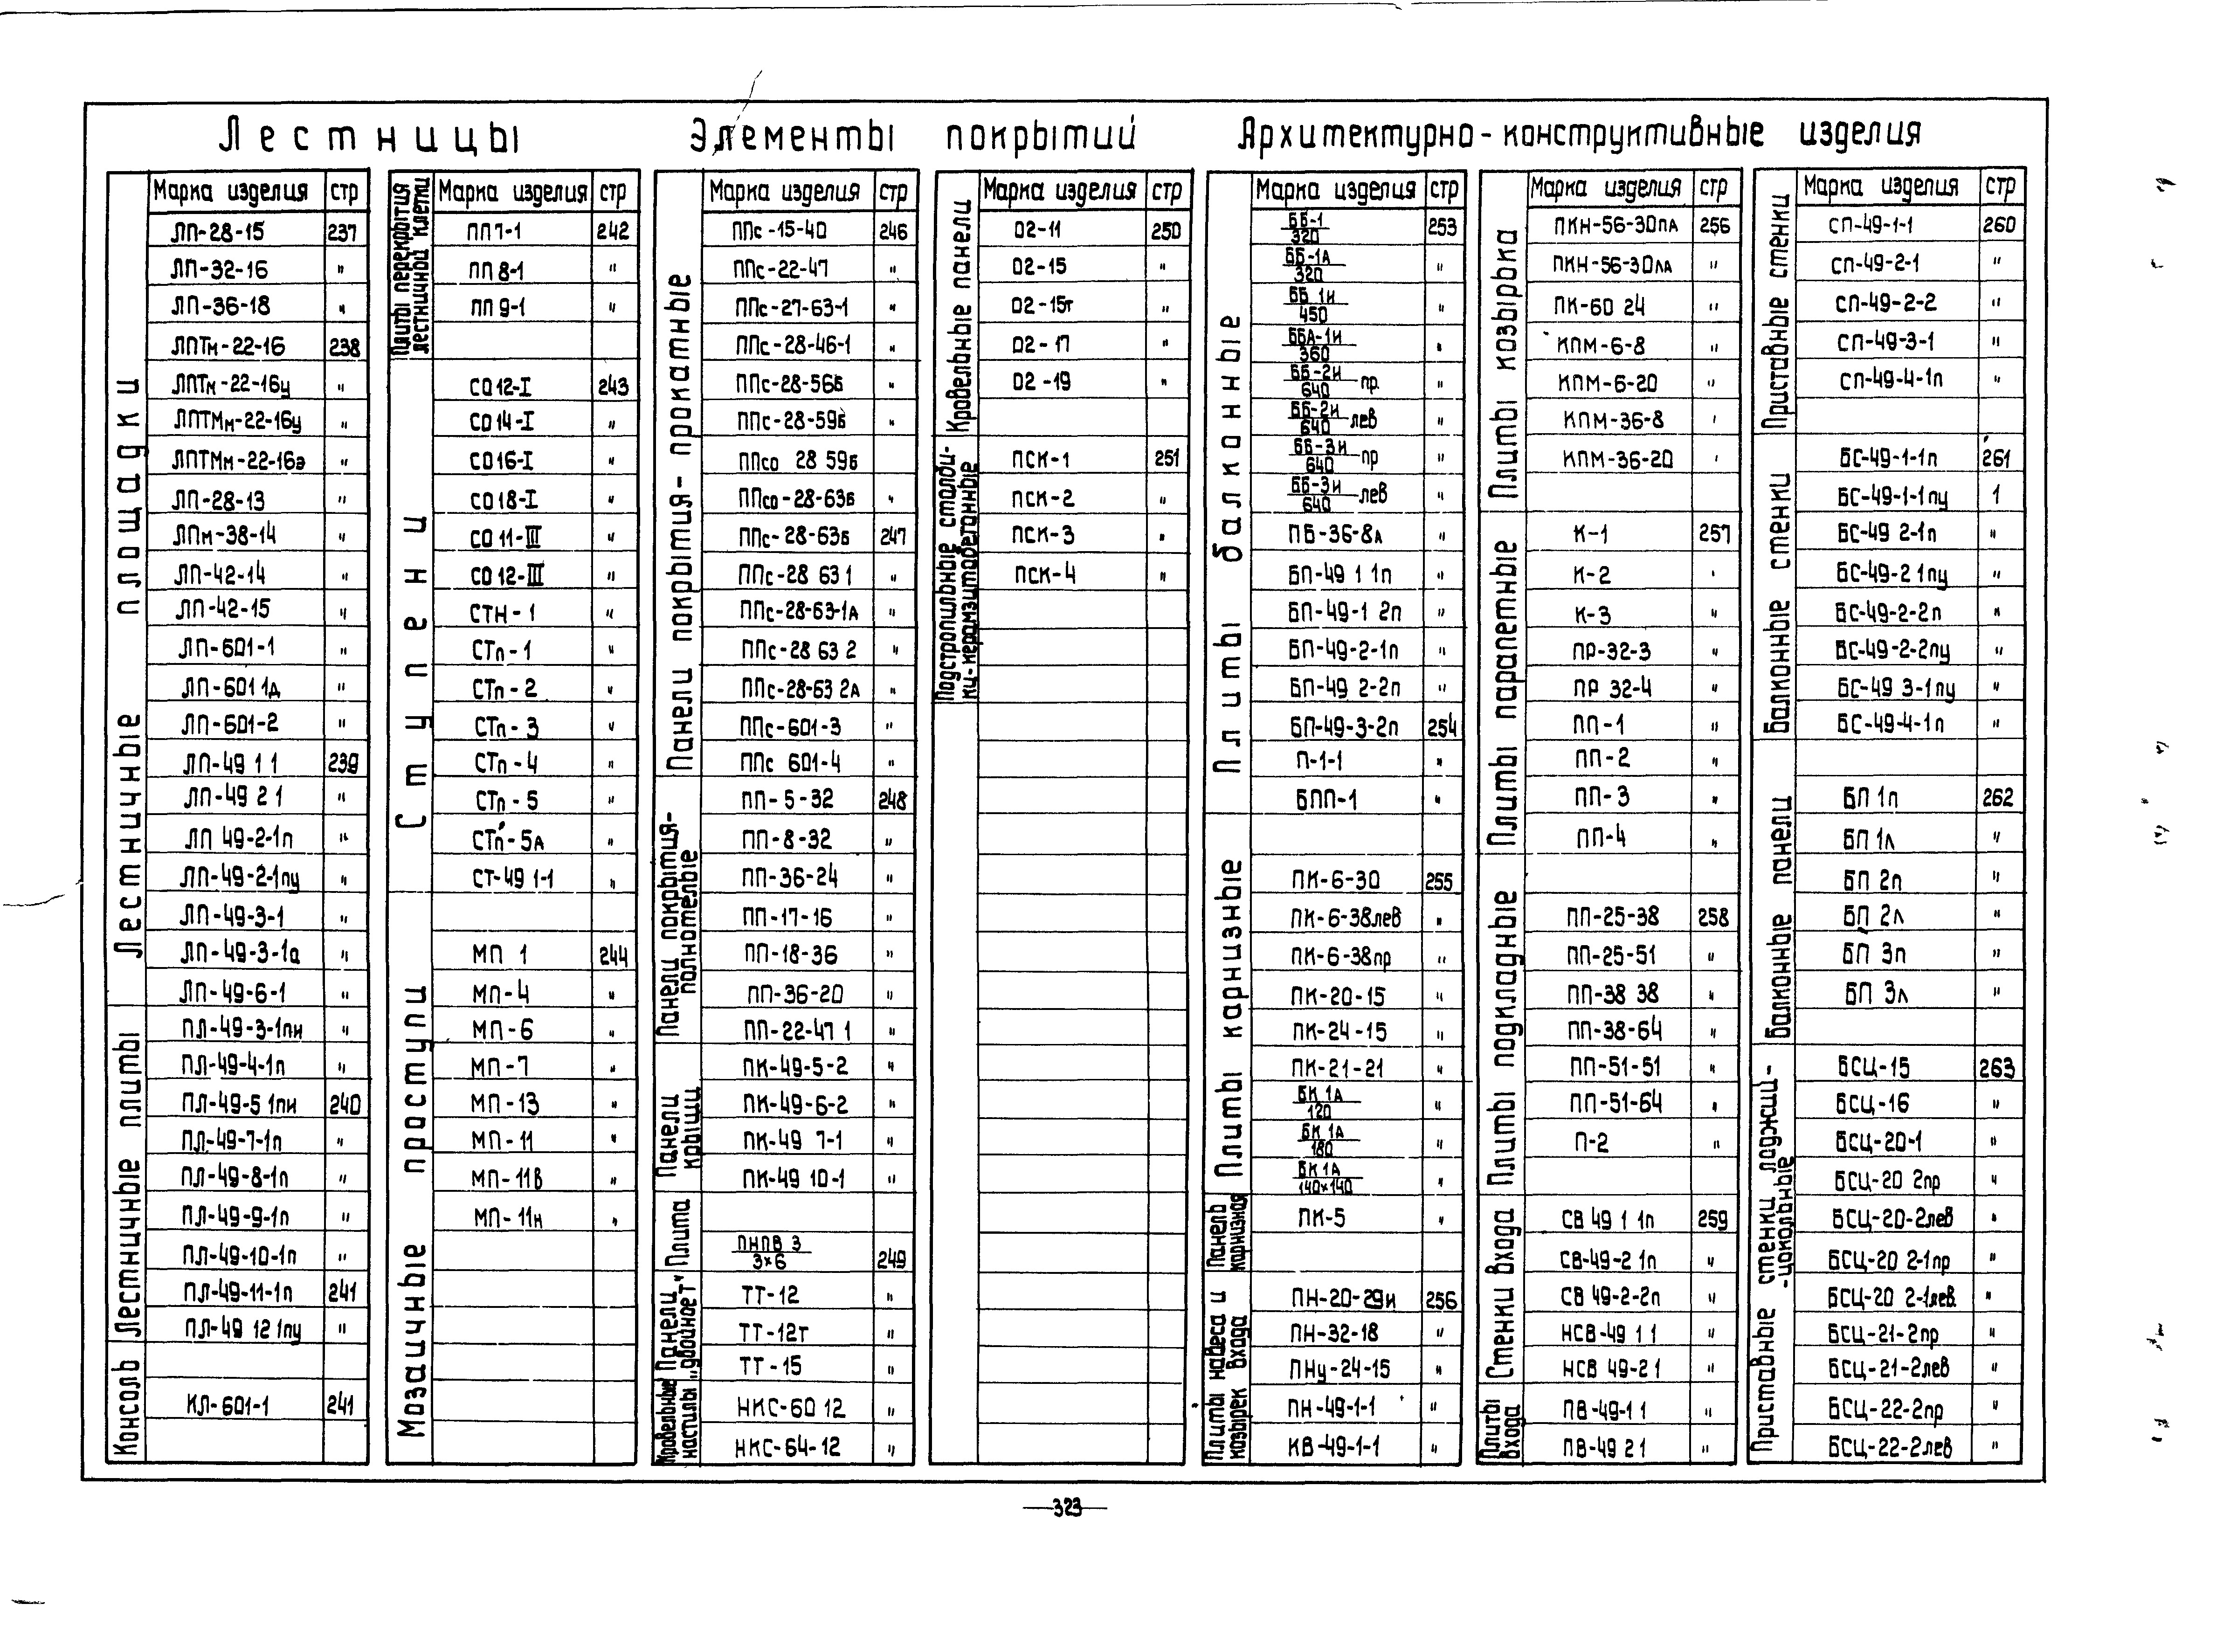 Лестницы
Элементы покрытий
Архитектурно-конструктивные изделия
Лестничные площадки
Марка изделия стр
ЛП-28-15 237
ЛП-32-16 "
ЛП-36-18 "
ЛПТм-22-16 238
ЛПТм-22-16у "
ЛПТМм-22-16у "
ЛПТМм-22-16э "
ЛП-28-13 "
ЛПм-38-14 "
ЛП-42-14 "
ЛП-42-15 "
ЛП-601-1 "
ЛП-601 1д "
ЛП-601-2 "
ЛП-49 1 1 239
ЛП-49 2 1 "
ЛП 49-2-1п "
ЛП-49-2-1пу "
ЛП-49-3-1 "
ЛП-49-3-1а "
ЛП-49-6-1 "
Лестничные плиты
ПЛ-49-3-1пи "
ПЛ-49-4-1п "
ПЛ-49-5 1пи 240
ПЛ-49-7-1п "
ПЛ-49-8-1п "
ПЛ-49-9-1п "
ПЛ-49-10-1п "
ПЛ-49-11-1п 241
ПЛ-49 12 1пу "
Консоль
КЛ-601-1 241
Плиты перекрытия
лестничной клетки
Марка изделия стр
ПП7-1 242
ПП 8-1 "
ПП 9-1 "
Ступени
СО 12-I 243
СО 14-I "
СО 16-I "
СО 18-I "
СО 11-III "
СО 12-III "
СТН-1 "
СТп-1 "
СТп-2 "
СТп-3 "
СТп-4 "
СТп-5 "
СТп-5А "
СТ-49 1-1 "
Мозаичные проступи
МП 1 244
МП-4 "
МП-6 "
МП-7 "
МП-13 "
МП-11 "
МП-11в "
МП-11н "
Панели покрытия-прокатные
Марка изделия стр
ППс-15-40 246
ППс-22-47 "
ППс-27-63-1 "
ППс-28-46-1 "
ППс-28-56б "
ППс-28-59б "
ППсо 28 59б
ППсо-28-63б "
ППс-28-63б 247
ППс-28 63 1 "
ППс-28-63-1А "
ППс-28 63 2 "
ППс-28-63 2А "
ППс-601-3 "
ППс 601-4 "
Панели покрытия-
полнотелые
ПП-5-32 248
ПП-8-32 "
ПП-36-24 "
ПП-17-16 "
ПП-18-36 "
ПП-36-20 "
ПП-22-47 1 "
Панели
крыши
ПК-49-5-2 "
ПК-49-6-2 "
ПК-49 7-1 "
ПК-49 10-1 "
Плита
ПНПВ 3
3×6 249
Панели
„двойное Т"
ТТ-12 "
ТТ-12т "
ТТ-15 "
Кровельные
настилы
НКС-60 12 "
НКС-64-12 "
Кровельные панели
Марка изделия стр
О2-11 250
О2-15 "
О2-15т "
О2-17 "
О2-19 "
Подстропильные столби-
ки-керамзитобетонные
ПСК-1 251
ПСК-2 "
ПСК-3 "
ПСК-4 "
Плиты балконные
Марка изделия стр
ББ-1
320 253
ББ-1А
320 "
ББ 1и
450 "
ББА-1и
360 "
ББ-2и
640 пр. "
ББ-2и
640 лев "
ББ-3и
640 пр "
ББ-3и
640 лев "
ПБ-36-8А "
БП-49 1 1п "
БП-49-1 2п "
БП-49-2-1п "
БП-49 2-2п "
БП-49-3-2п 254
П-1-1 "
БПП-1 "
Плиты карнизные
ПК-6-30 255
ПК-6-38лев "
ПК-6-38пр "
ПК-20-15 "
ПК-24-15 "
ПК-21-21 "
БК 1А
120 "
БК 1А
180 "
БК 1А
140×140 "
Панель
карнизная
ПК-5 "
Плиты навеса и
козырек входа
ПН-20-29и 256
ПН-32-18 "
ПНу-24-15 "
ПН-49-1-1 "
КВ-49-1-1 "
Плиты козырька
Марка изделия стр
ПКН-56-30пА 256
ПКН-56-30лА "
ПК-60 24 "
КПМ-6-8 "
КПМ-6-20 "
КПМ-36-8 "
КПМ-36-20 "
Плиты парапетные
К-1 257
К-2 "
К-3 "
ПР-32-3 "
ПР 32-4 "
ПП-1 "
ПП-2 "
ПП-3 "
ПП-4 "
Плиты подкладные
ПП-25-38 258
ПП-25-51 "
ПП-38 38 "
ПП-38-64 "
ПП-51-51 "
ПП-51-64 "
П-2 "
Стенки входа
СВ 49 1 1п 259
СВ-49-2 1п "
СВ 49-2-2п "
НСВ-49 1 1 "
НСВ 49-2 1 "
Плиты
входа
ПВ-49-1 1 "
ПВ-49 2 1 "
Приставные стенки
Марка изделия стр
СП-49-1-1 260
СП-49-2-1 "
СП-49-2-2 "
СП-49-3-1 "
СП-49-4-1п "
Балконные стенки
БС-49-1-1п 261
БС-49-1-1пу 1
БС-49 2-1п "
БС-49-2 1пу "
БС-49-2-2п "
БС-49-2-2пу "
БС-49 3-1пу "
БС-49-4-1п "
Балконные панели
БП 1п 262
БП 1л "
БП 2п "
БП 2л "
БП 3п "
БП 3л "
Приставные стенки лоджий-
-цокольные
БСЦ-15 263
БСЦ-16 "
БСЦ-20-1 "
БСЦ-20 2пр "
БСЦ-20-2лев "
БСЦ-20 2-1пр "
БСЦ-20 2-1лев. "
БСЦ-21-2пр "
БСЦ-21-2лев "
БСЦ-22-2пр "
БСЦ-22-2лев "
—323—